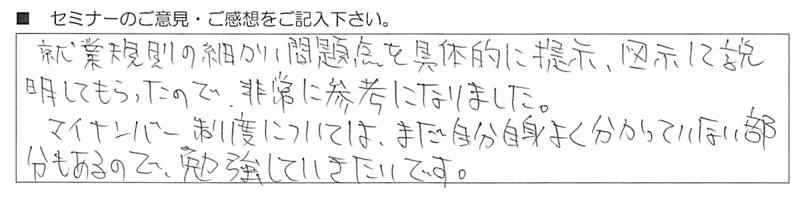 ■ セミナーのご意見・ご感想をご記入下さい。
就業規則の細かい問題点を具体的に提示、図示して説
明してもらったので、非常に参考になりました。
マイナンバー制度については、まだ自分自身よく分かっていない部
分もあるので、勉強していきたいです。